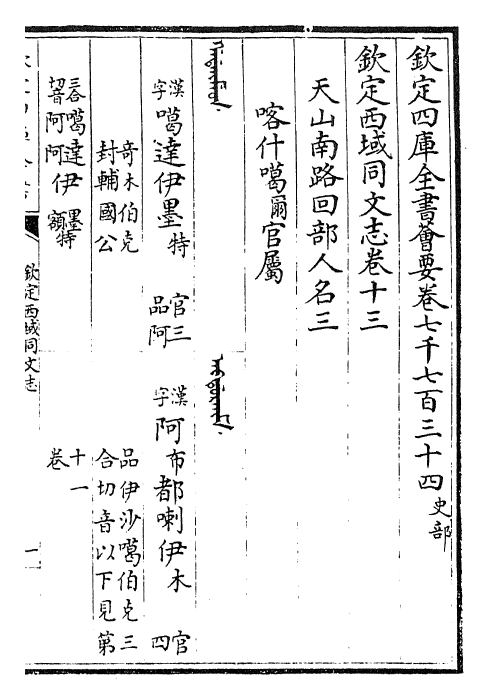 欽定四庫全書薈要卷七千七百三十四 史部
欽定西域同文志卷十三
天山南路回部人名三
喀什噶爾官屬
漢字 噶達伊墨特 官三品阿
奇木伯克
封輔國公
三合切音 噶阿達阿伊 墨額特
漢字 阿布都喇伊木 官四
品伊沙噶伯克三
合切音以下見第
十一
卷
欽定西域同文志
一